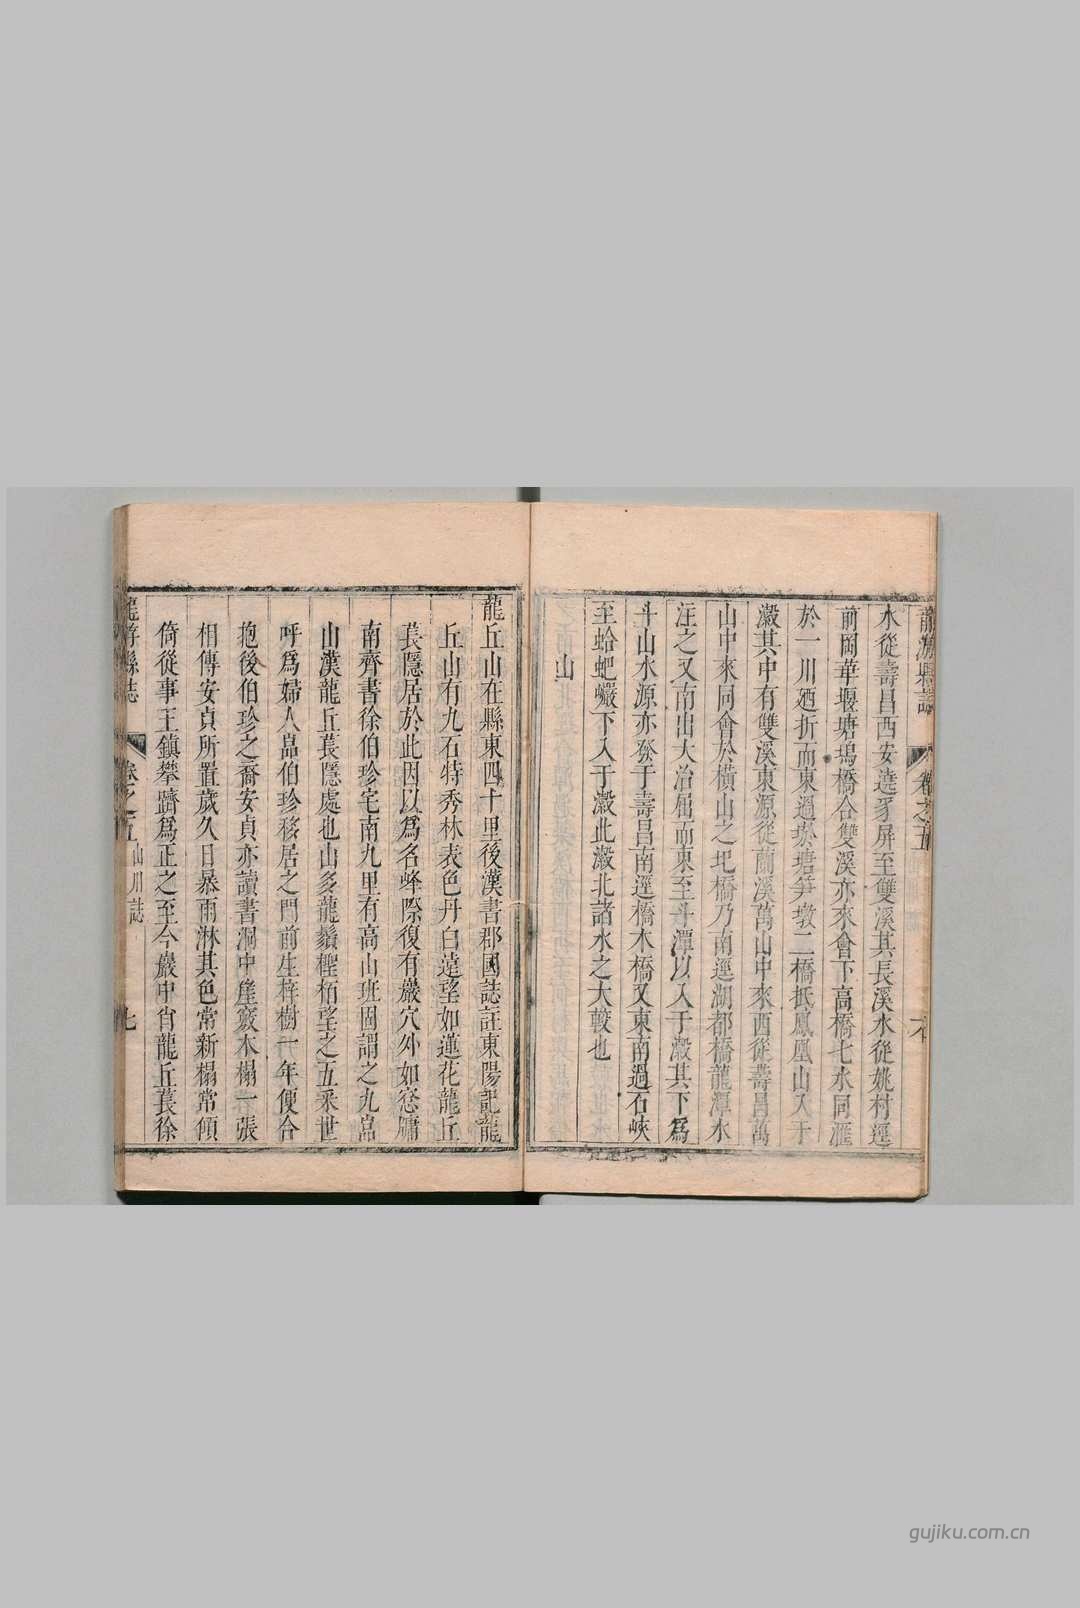 龍游縣誌
卷之五
六
水從壽昌西安遶豸屏至雙溪其長溪水從姚村逕
前岡華堰塘塢橋合雙溪亦來會下高橋七水同滙
於一川廼折而東過菸塘笋墩二橋抵鳳凰山入于
瀫其中有雙溪東源從蘭溪萬山中來西從壽昌萬
山中來同會於橫山之圯橋乃南逕湖都橋龍潭水
注之又南出大冶屈而東至斗潭以入于瀫其下為
斗山水源亦發于壽昌南逕橋木橋又東南過石峽
至蛤蚆巘下入于瀫此瀫北諸水之大較也
山
龍丘山在縣東四十里後漢書郡國誌註東陽記龍
丘山有九石特秀林表色丹白遠望如蓮花龍丘
萇隱居於此因以為名峰際復有巖穴外如窓牖
南齊書徐伯珍宅南九里有高山班固謂之九嵓
山漢龍丘萇隱處也山多龍鬚檉栢望之五采世
呼為婦人嵓伯珍移居之門前生梓樹一年便合
抱後伯珍之裔安貞亦讀書洞中崖竅木榻一張
相傳安貞所置歲久日暴雨淋其色常新榻常傾
倚從事王鎮攀躋為正之至今巖中肖龍丘萇徐
龍游縣誌
卷之五
山川誌
七
gujiku.com.cn